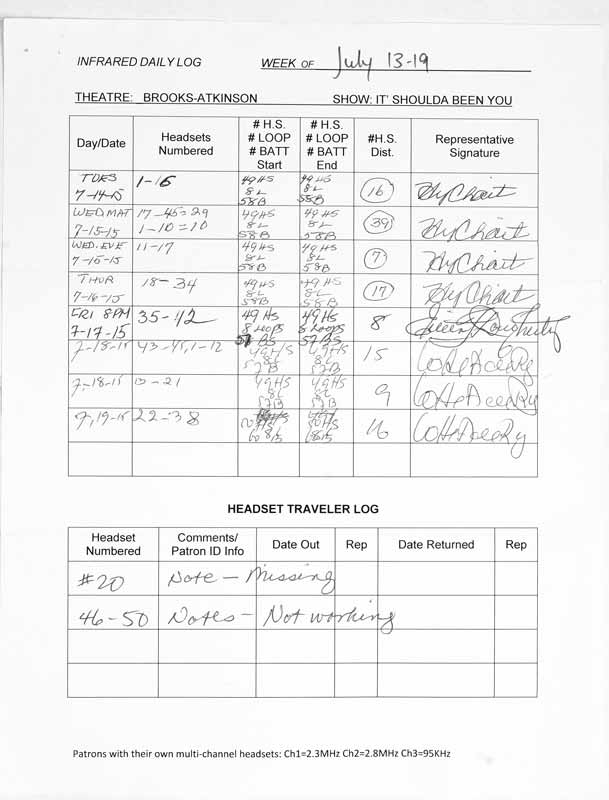 INFRARED DAILY LOG WEEK OF July 13-19
THEATRE: BROOKS-ATKINSON SHOW: IT' SHOULDA BEEN YOU
Day/Date Headsets Numbered # H.S. # LOOP # BATT Start # H.S. # LOOP # BATT End #H.S. Dist. Representative Signature
TUES 7-14-15 1-16 49 HS 8L 58B 49 HS 8L 58B 16
WED MAT 7-15-15 17-45=29 1-10=10 49HS 8L 58B 49HS 8L 58B 39
WED. EVE 7-15-15 11-17 49HS 8L 58B 49HS 8L 58B 7
THUR 7-16-15 18-34 49HS 8L 58B 49HS 8L 58B 17
FRI 8PM 7-17-15 35-42 49 HS 8 Loops 57 BS 49 HS 8 Loops 57 BS 8
7-18-15 43-45, 1-12 49HS 8L 57B 49HS 8L 57B 15
7-18-15 13-21 49HS 8L 57B 49HS 8L 57B 9
7,19-15 22-38 16
HEADSET TRAVELER LOG
Headset Numbered Comments/ Patron ID Info Date Out Rep Date Returned Rep
#20 Note - Missing
46-50 Notes - Not working
Patrons with their own multi-channel headsets: Ch1=2.3MHz Ch2=2.8MHz Ch3=95KHz